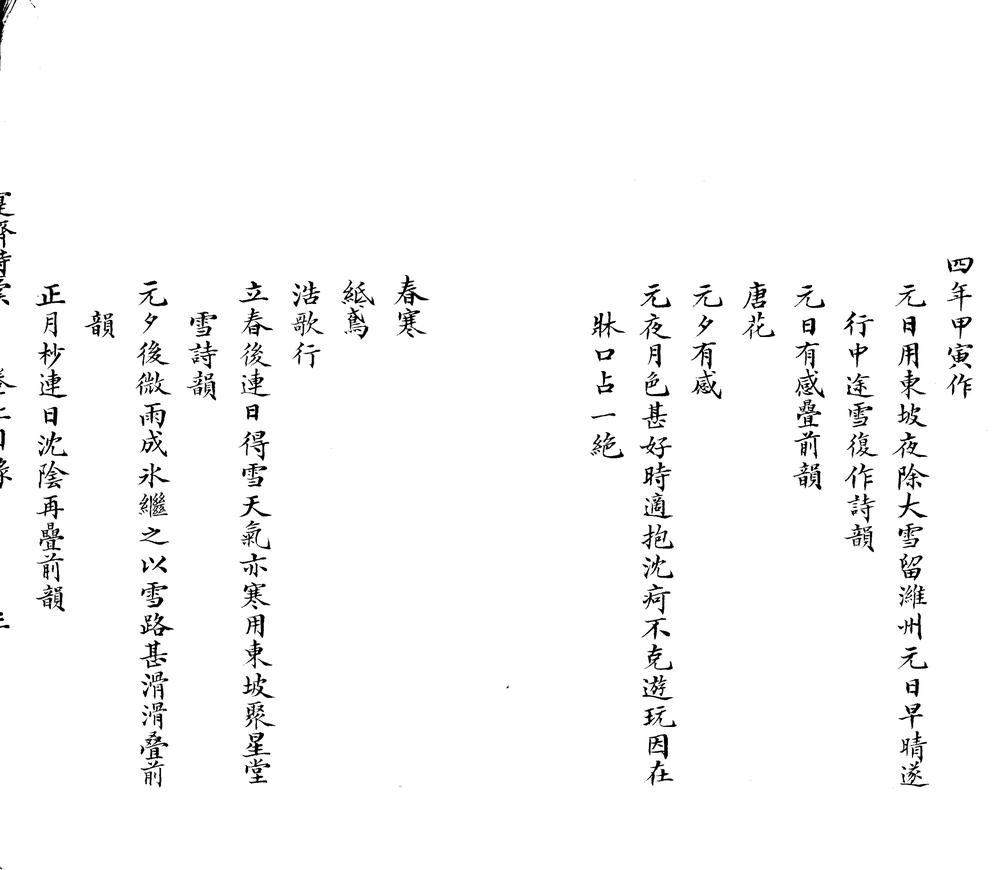 四年甲寅作
元日用東坡夜除大雪留濰州元日早晴遂
行中途雪復作詩韻
元日有感疊前韻
唐花
元夕有感
元夜月色甚好時適抱沈疴不克遊玩因在
牀口占一絶
春寒
紙鳶
浩歌行
立春後連日得雪天氣亦寒用東坡聚星堂
雪詩韻
元夕後微雨成氷繼之以雪路甚滑滑叠前
韻
正月杪連日沈陰再疊前韻